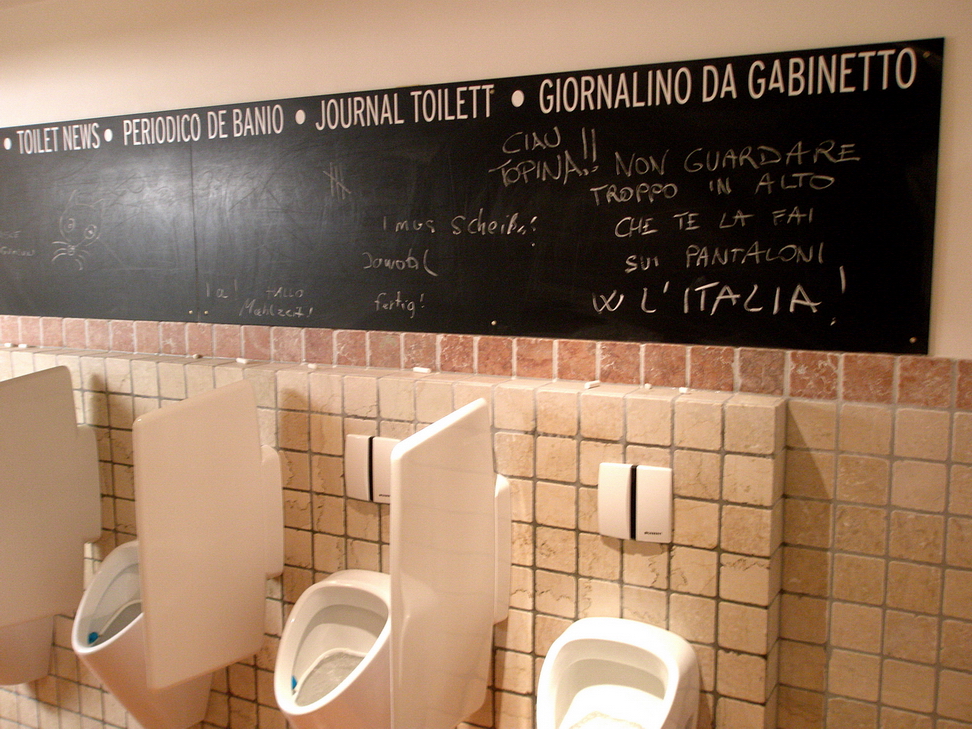 • TOILET NEWS • PERIODICO DE BANIO • JOURNAL TOILETT • GIORNALINO DA GABINETTO
CIAU
TOPINA!!
NON GUARDARE
TROPPO IN ALTO
CHE TE LA FAI
SUI PANTALONI
W L'ITALIA!
I mus Scheiß!
Jawohl
fertig!
HALLO
Mahlzeit!